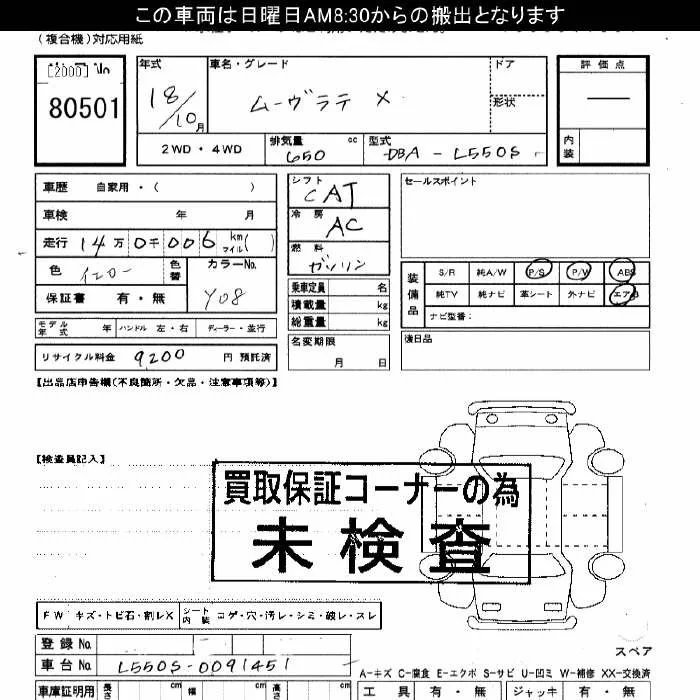 この車両は日曜日AM8:30からの搬出となります
(複合機)対応用紙
[2000] No
80501
年式
18/10月
車名・グレード
ムーヴラテ X
ドア
形状
2WD・4WD
排気量 650 cc
型式 DBA-L550S
評価点
—
内装
車歴 自家用・( )
車検 年 月
走行 14万0千006 km マイル( )
色 イエロー
色替
カラーNo. Y08
保証書 有・無
モデル年式 年 ハンドル 左・右 ディーラー・並行
リサイクル料金 9200 円 預託済
シフト CAT
冷房 AC
燃料 ガソリン
乗車定員 名
積載量 kg
総重量 kg
名変期限 月 日
セールスポイント
装備品
S/R 純A/W P/S P/W ABS
純TV 純ナビ 革シート 外ナビ エアB
ナビ型番:
後日品
【出品店申告欄(不良箇所・欠品・注意事項等)】
【検査員記入】
買取保証コーナーの為
未検査
FW キズ・トビ石・割レX
シート内装 コゲ・穴・汚レ・シミ・破レ・スレ
登録 No.
車台 No. L550S-0091451
スペア
A-キズ C-腐食 E-エクボ S-サビ U-凹ミ W-補修 XX-交換済
車庫証明用 長さ cm 幅 cm 高さ cm
工具 有・無 ジャッキ 有・無